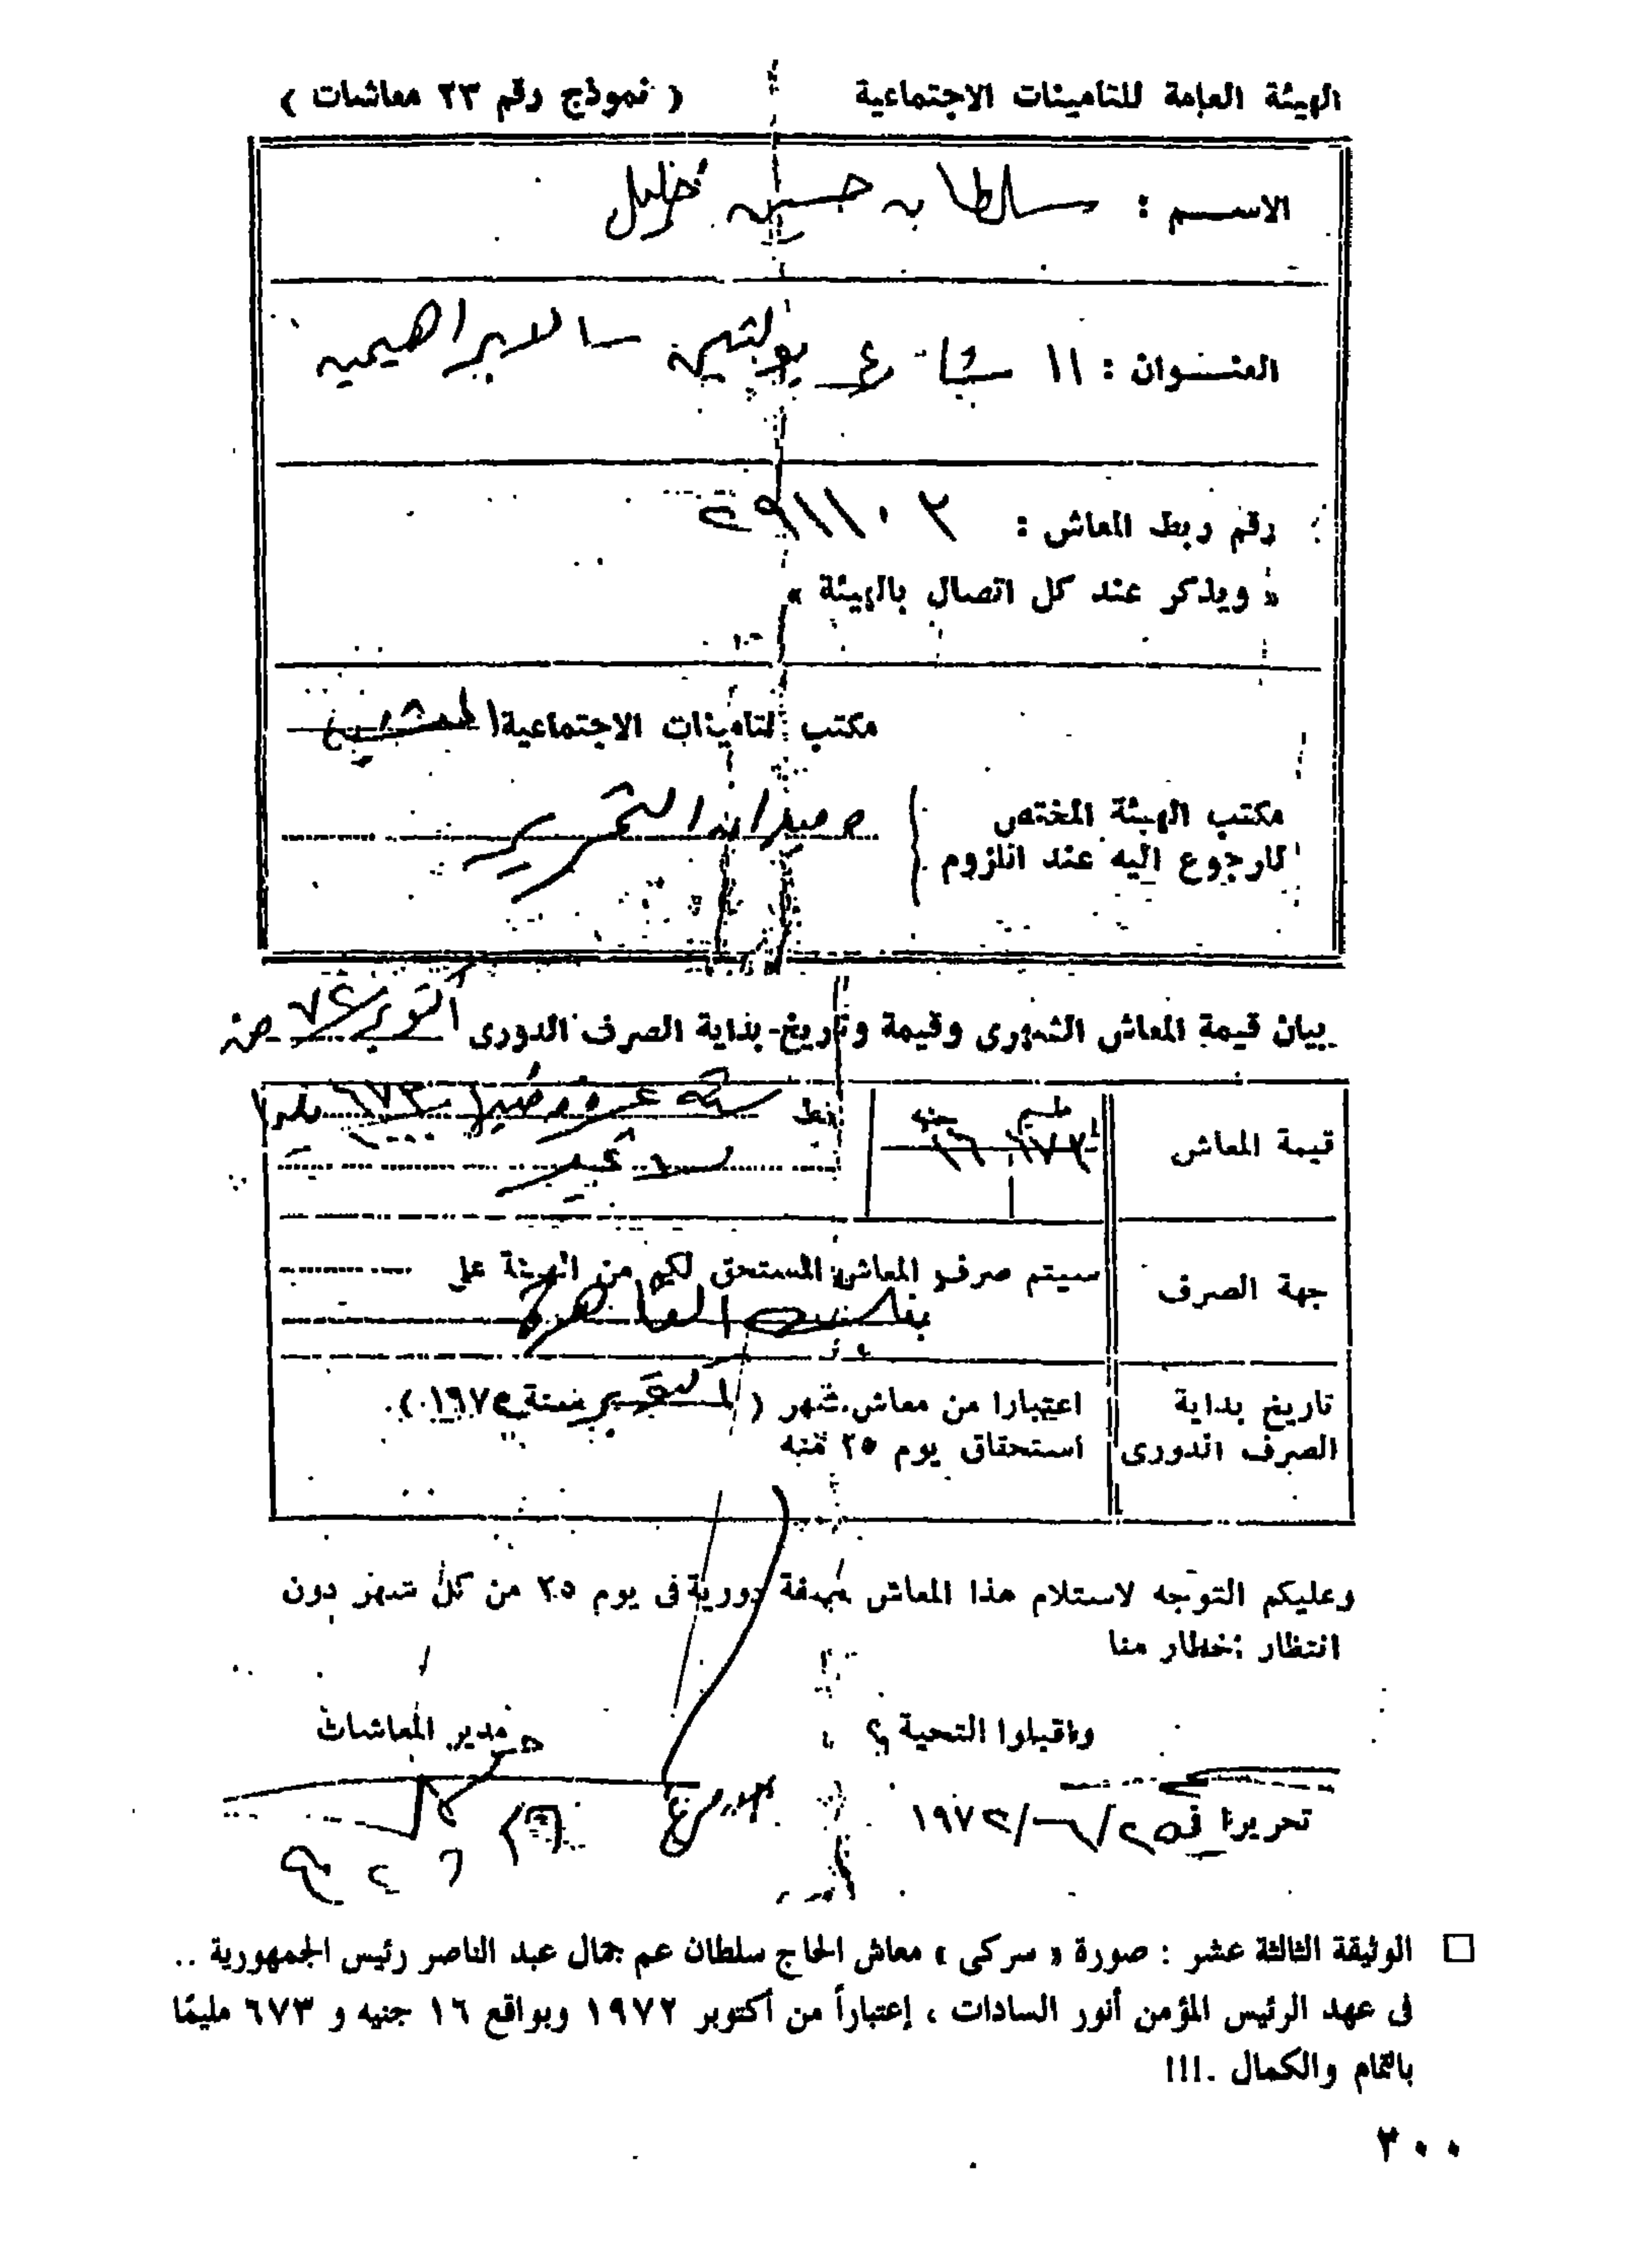 الهيئة العامة للتأمينات الاجتماعية ( نموذج رقم ٢٣ معاشات )
الاســـم : سلطان حسين خليل
العنــوان : ١١ شارع الابراهيميه
رقم ربط المعاش :
« ويذكر عند كل اتصال بالهيئة »
مكتب التأمينات الاجتماعية
مكتب الهيئة المختص
للرجوع اليه عند اللزوم
ميدان التحرير
بيان قيمة المعاش الشهرى وقيمة وتاريخ بداية الصرف الدورى أكتوبر
قيمة المعاش
مليم جنيه
٦٧٣ ١٦
فقط ستة عشر
لا غير
جهة الصرف
سيتم صرف المعاش المستحق لكم من الهيئة على
بنك القاهرة
تاريخ بداية الصرف الدورى
اعتبارا من معاش شهر ( أكتوبر سنة ١٩٧٢ ) .
استحقاق يوم ٢٥ منه
وعليكم التوجه لاستلام هذا المعاش بصفة دورية فى يوم ٢٥ من كل شهر دون
انتظار إخطار منا
واقبلوا التحية ؟ مدير المعاشات
تحريرا فى
□ الوثيقة الثالثة عشر : صورة « سركى » معاش الحاج سلطان عم جمال عبد الناصر رئيس الجمهورية ..
فى عهد الرئيس المؤمن أنور السادات ، إعتباراً من أكتوبر ١٩٧٢ وبواقع ١٦ جنيه و ٦٧٣ مليمًا
بالتمام والكمال .!!!
٢٠٠